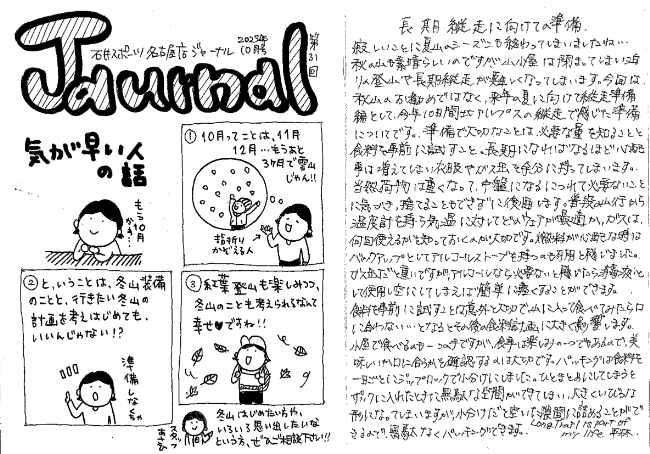 Journal
石井スポーツ 名古屋店 ジャーナル
2023年
10月号
第31回
気が早い人
の話
もう10月
かぁ…
① 10月ってことは、11月
12月…もうあと
3ヶ月で雪山
じゃん!!
指折り
かぞえる人
② と、いうことは、冬山装備
のことと、行きたい冬山の
計画を考えはじめても、
いいんじゃない!?
準備しなくちゃ
③ 紅葉登山も楽しみつつ、
冬山のことも考えられるなんて
幸せ♥ですね!!
冬山はじめたい方や、
いろいろ思い出したいな
という方、ぜひご相談下さい!!
スタッフ
あさひ
長期縦走に向けての準備
寂しいことに夏山のシーズンも終わってしまいましたね…
秋の山も素晴らしいのですが山小屋は閉まってしまい泊
りの登山で長期縦走が難しくなってしまいます。今回は
秋山のお勧めではなく、来年の夏に向けて縦走準備
編として、今年10日間北アルプスの縦走で感じた準備
についてです。準備で大切なことは、必要な量を知ることと
食料を事前に試すこと。長期になればなるほど心配
事は増えてしまい衣服や
を余分に持ってしまいます。
当然荷物は重くなって、中盤になるにつれて必要ないこと
に気づき、捨てることもできずに後悔します。普段の山行から
温度計を持ち気温に対してどのウェアが最適か、ガスは、
何回使えるかを知っておくのが大切です。燃料が心配な時は
バックアップとしてアルコールストーブを持つのも有用と感じました。
アルコールなら必要ないと感じたら消毒液とし
て使用し空にしてしまえば簡単に軽くすることができます。
食料を事前に試すことは意外と大切で山に入って食べてみたら口
に合わない…となるとその後の食料計画に大きく影響します。
小屋で食べるのも一つの手ですが、食事は楽しみの一つでもあるので、美
味しいか口に合うかを確認するのは大切です。パッキングは食料を
一日ごとにジップロックで小分けにしました。ひとまとめにしてしまうと
ザックに入れたときに無駄な空間ができてしまい、大きくいびつな
形になってしまいますが、小分けだと空いた隙間に詰めることがで
きるので、無駄なくパッキングできます。
Long Trail is part of
my life